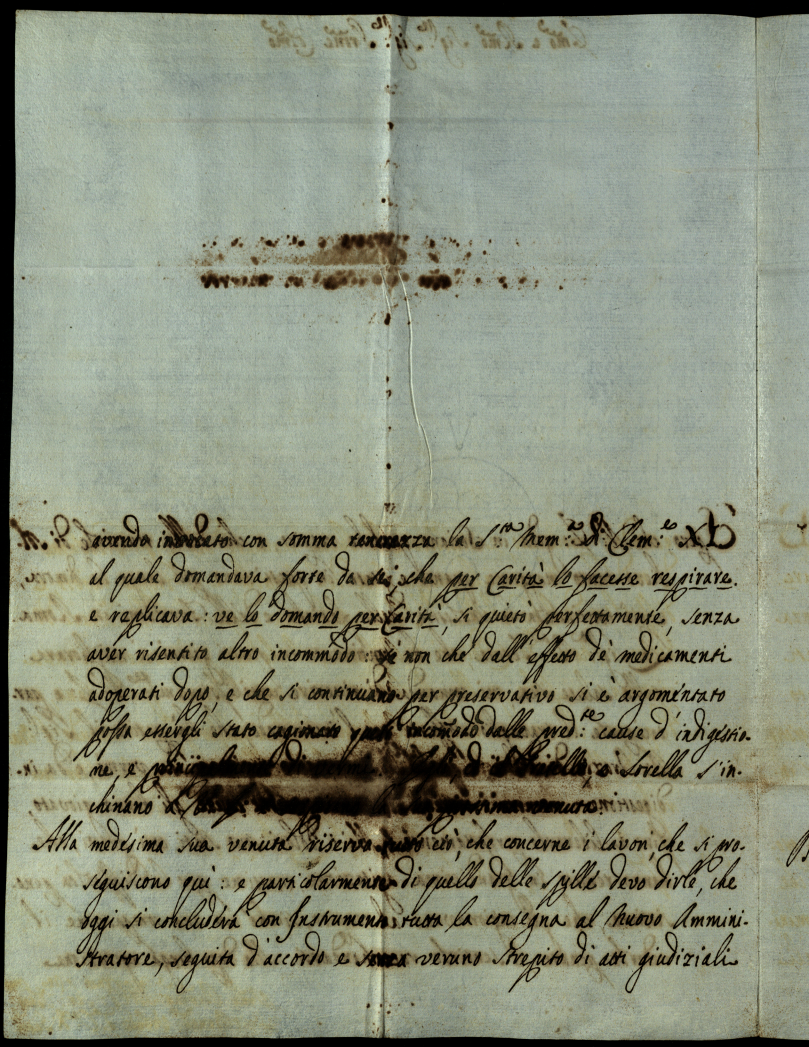 avendo invocato con somma tenerezza la S.ta Mem.a di Clem.e XI
al quale domandava forte da se, che per Carità lo facesse respirare.
e replicava: ve lo domando per Carità, si quietò perfettamente, senza
aver risentito altro incommodo: se non che dall'effetto de medicamenti
adoperati dopo, e che si continuano per preservativo si è argomentato
possa essergli stato cagionato questo incomodo dalle pred.te cause d'indigestio-
ne, e o Sorella s'in-
chinano a sua venuta.
Alla medesima sua venuta riservo tutto ciò, che concerne i lavori, che si pro-
seguiscono quì: e particolarmente di quello delle spille devo dirle, che
oggi si concluderà con Instrumento tutta la consegna al Nuovo Ammini-
stratore, seguita d'accordo e senza veruno strepito di atti giudiziali